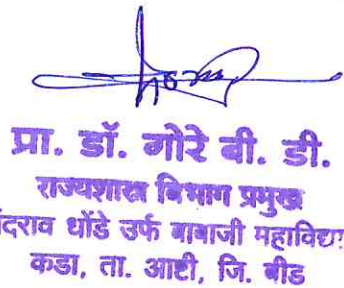 प्रा. डॉ. गोरे बी. डी.
राज्यशास्त्र विभाग प्रमुख
धोंडे उर्फ बाबाजी
कडा, ता. आष्टी, जि. बीड